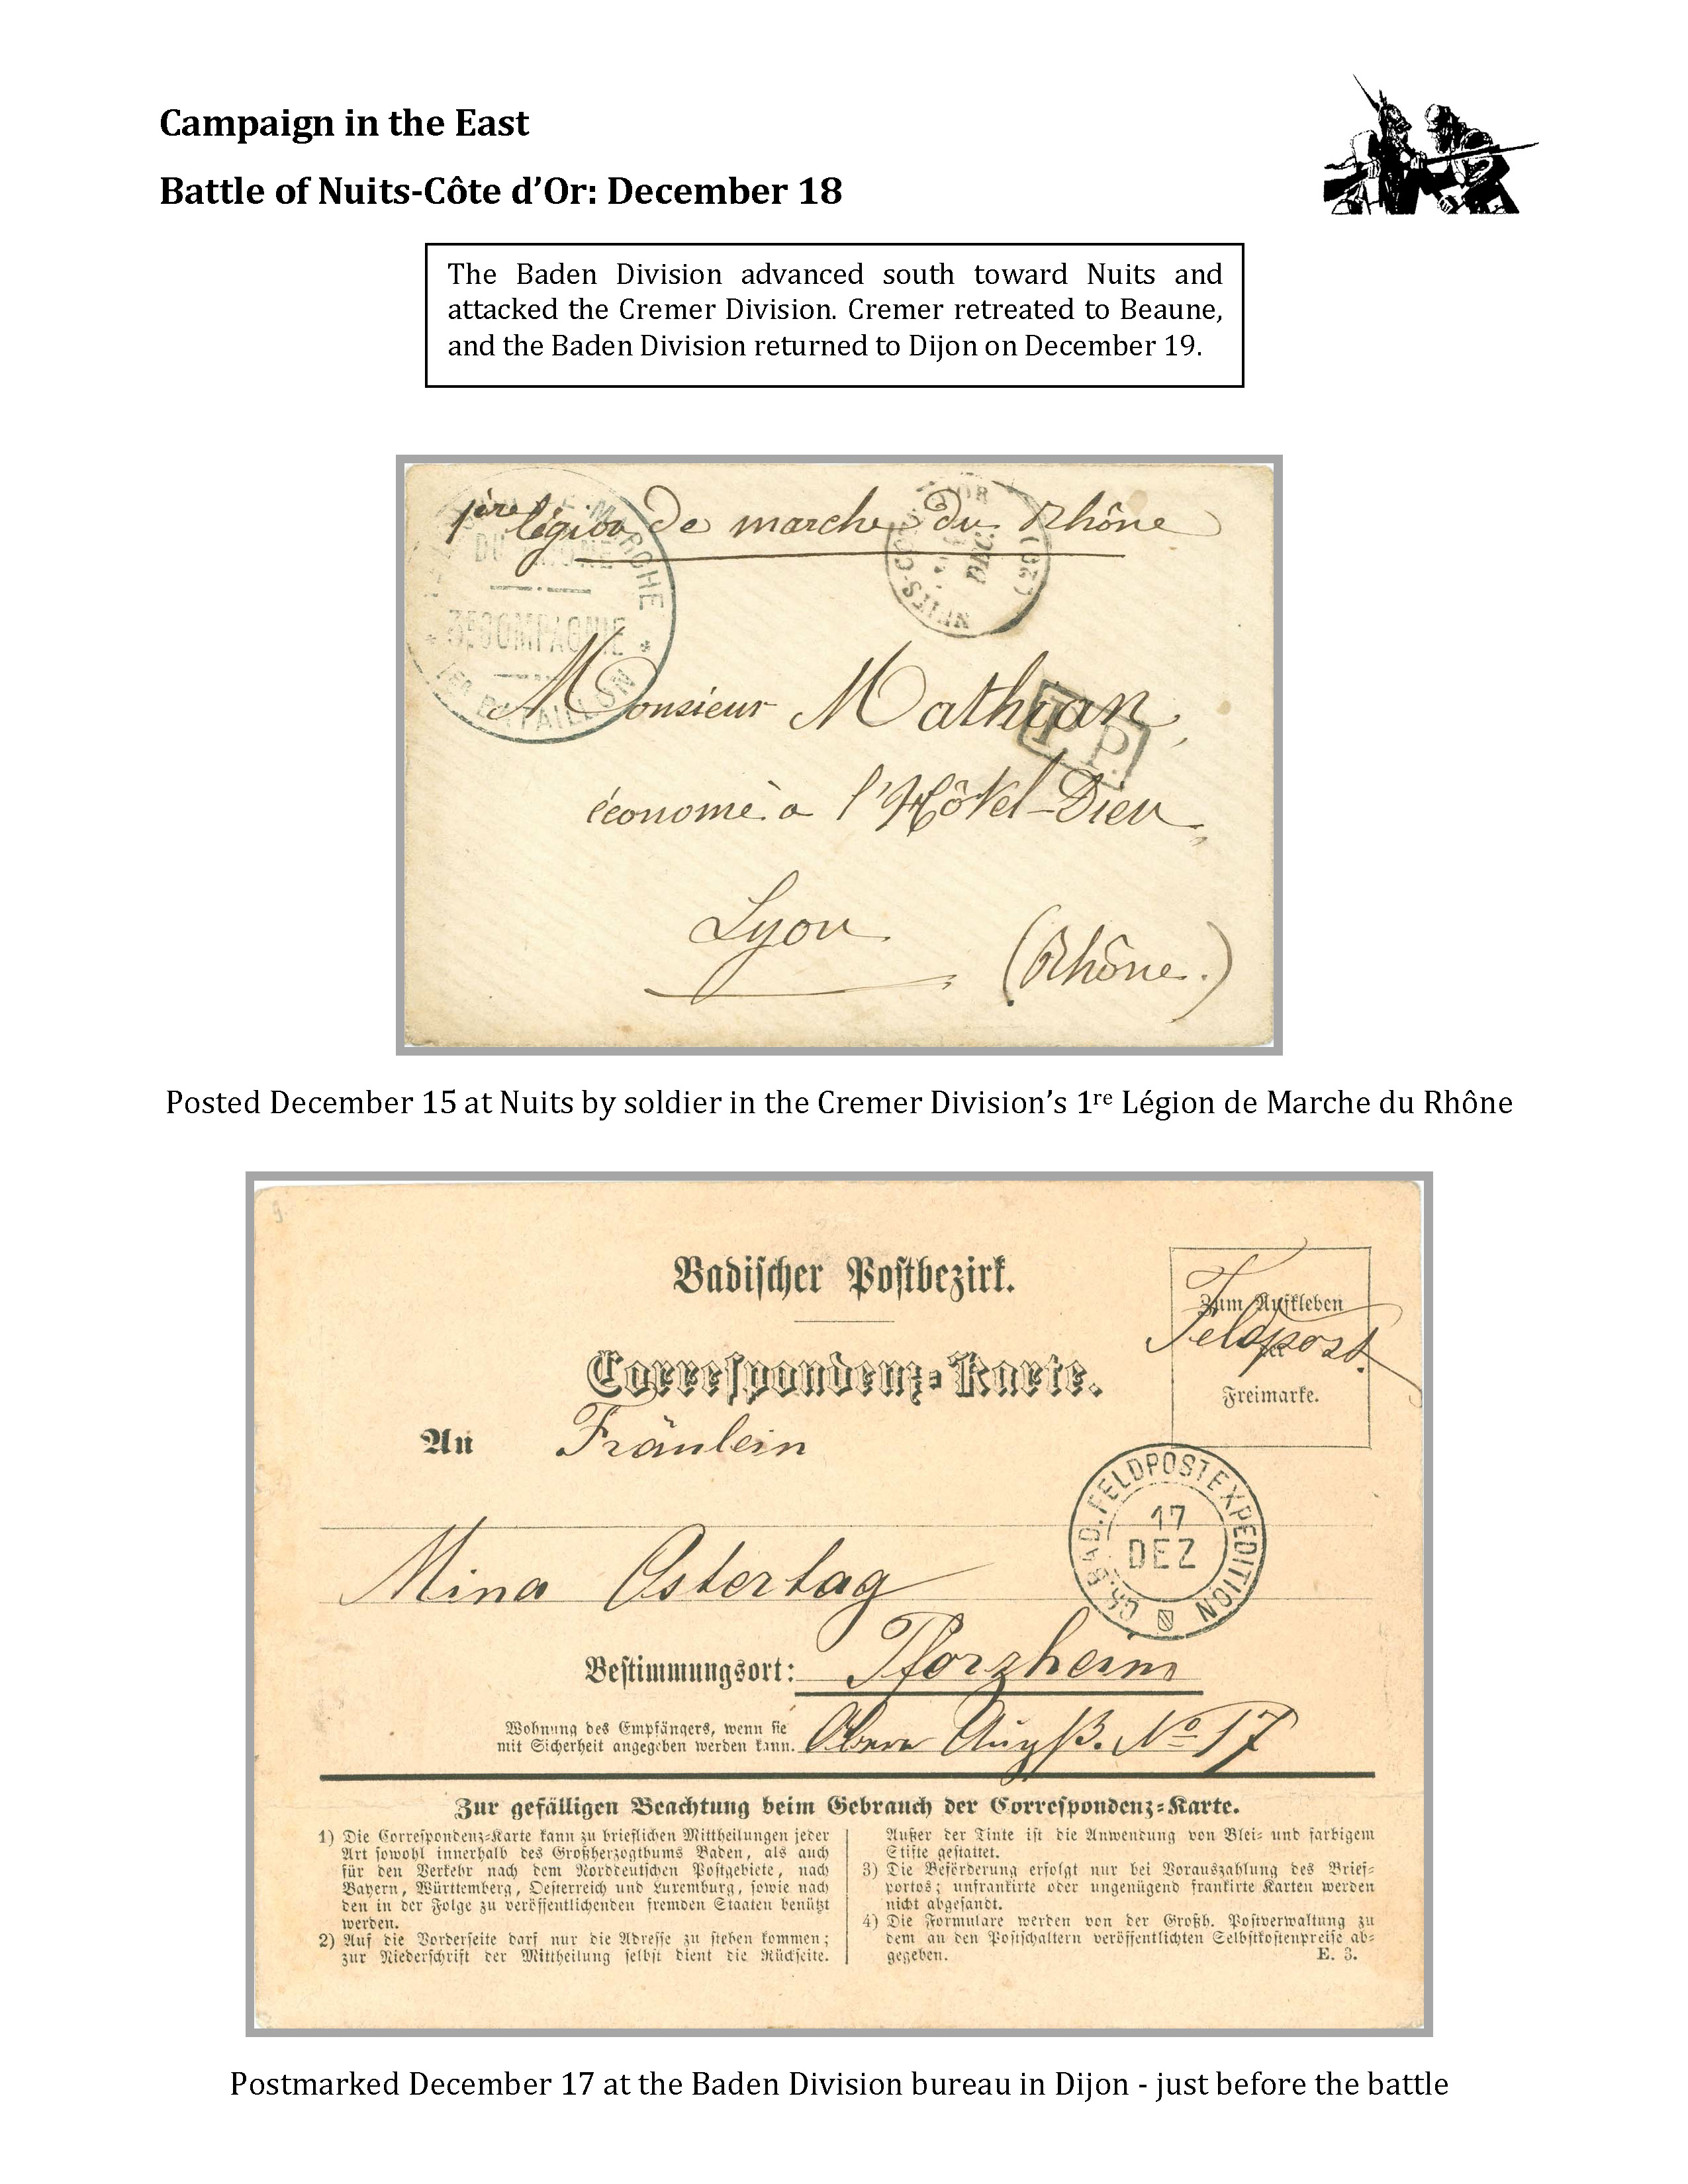 Campaign in the East
Battle of Nuits-Côte d’Or: December 18
The Baden Division advanced south toward Nuits and
attacked the Cremer Division. Cremer retreated to Beaune,
and the Baden Division returned to Dijon on December 19.
1ère légion de marche du Rhône
MARCHE
DU RHÔNE
3E COMPAGNIE
1ER BATAILLON
NUITS-COTE-D'OR (20)
DEC.
Monsieur Mathian,
économe à l'Hôtel-Dieu,
P.P.
Lyon
(Rhône.)
Posted December 15 at Nuits by soldier in the Cremer Division’s 1re Légion de Marche du Rhône
Badischer Postbezirk.
Zum Aufkleben
Feldpost.
Freimarke.
Correspondenz-Karte.
An Fräulein
GR. BAD. FELDPOSTEXPEDITION
17
DEZ
Mina Ostertag
Bestimmungsort: Pforzheim
Wohnung des Empfängers, wenn sie
mit Sicherheit angegeben werden kann.
No 17
Zur gefälligen Beachtung beim Gebrauch der Correspondenz-Karte.
1) Die Correspondenz-Karte kann zu brieflichen Mittheilungen jeder
Art sowohl innerhalb des Großherzogthums Baden, als auch
für den Verkehr nach dem Norddeutschen Postgebiete, nach
Bayern, Württemberg, Oesterreich und Luxemburg, sowie nach
den in der Folge zu veröffentlichenden fremden Staaten benützt
werden.
2) Auf die Vorderseite darf nur die Adresse zu stehen kommen;
zur Niederschrift der Mittheilung selbst dient die Rückseite.
Außer der Tinte ist die Anwendung von Blei- und farbigem
Stifte gestattet.
3) Die Beförderung erfolgt nur bei Vorauszahlung des Brief-
portos; unfrankirte oder ungenügend frankirte Karten werden
nicht abgesandt.
4) Die Formulare werden von der Großh. Postverwaltung zu
dem an den Postschaltern veröffentlichten Selbstkostenpreise ab-
gegeben.
E. 3.
Postmarked December 17 at the Baden Division bureau in Dijon - just before the battle